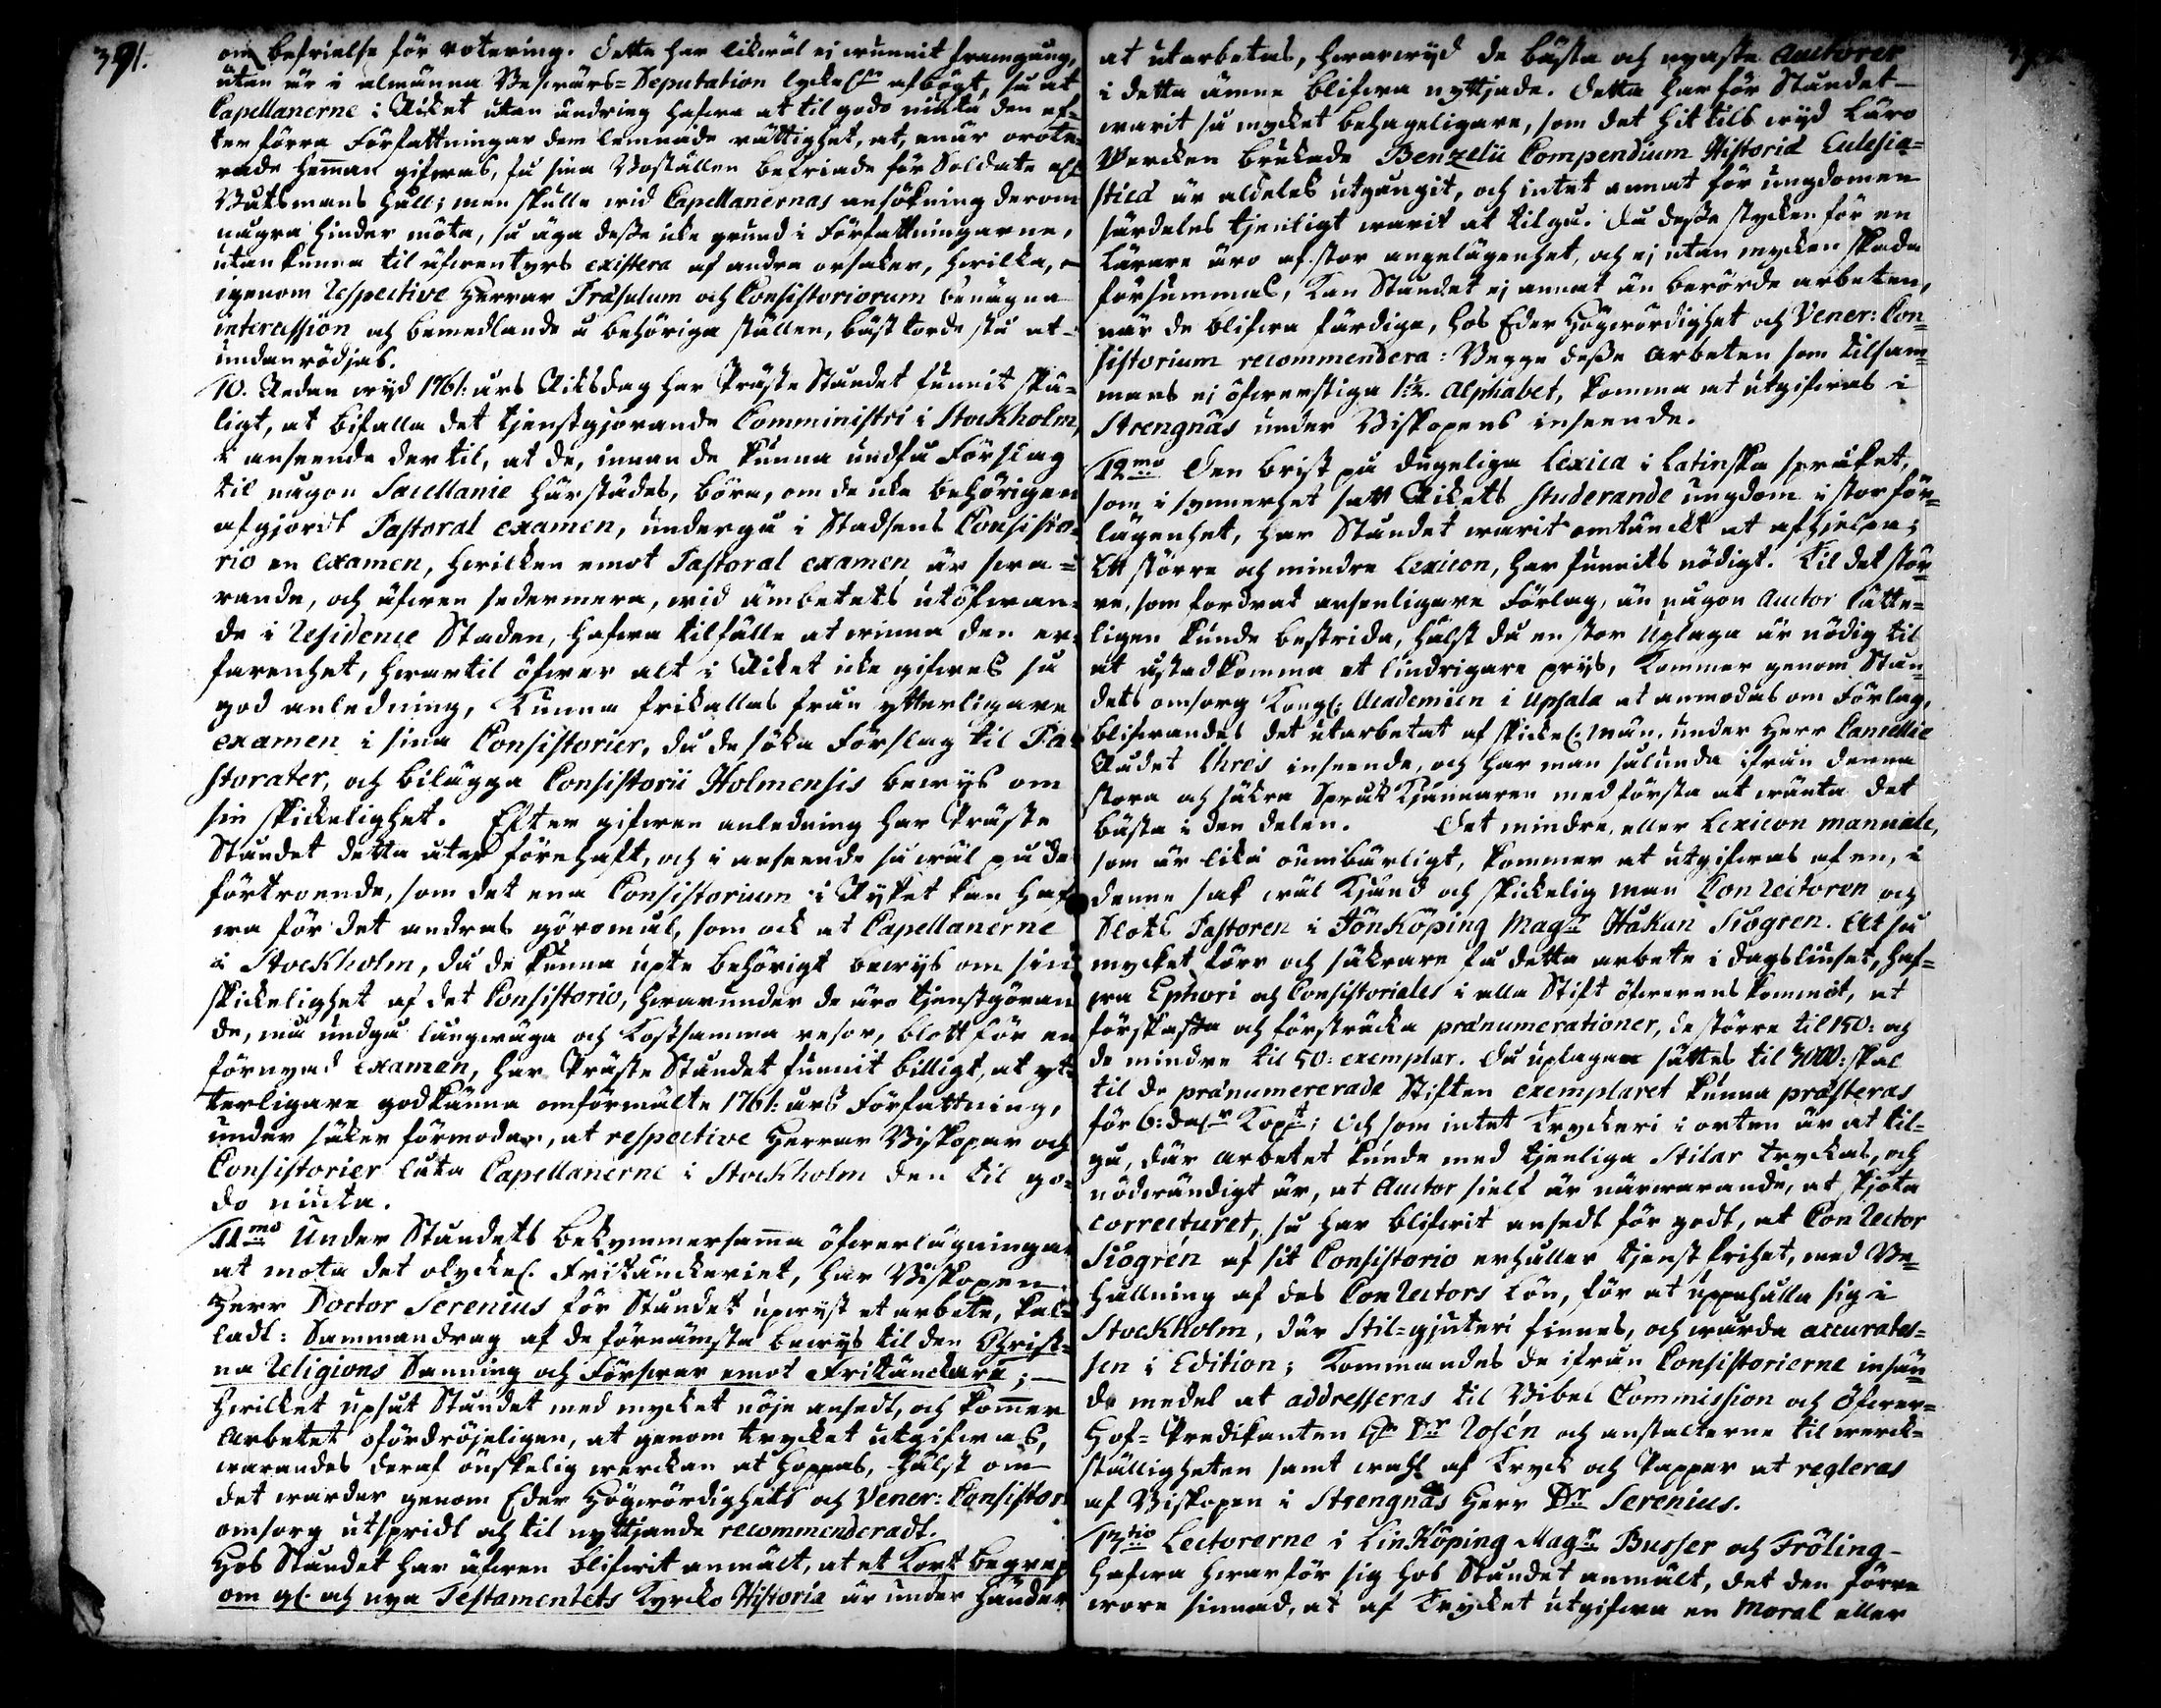 391.
om befrielse för rotering. Detta har likwäl ej wunnit framgång,
utan är i almänna Beswärs-Deputation lyckel:n afbögt, så at
Capellanerne i Riket utan ändring hafwa at til godo niuta den ef-
ter förra Författningar dem lemnade rättighet, at, enär orote-
rade Hemman gifwas, få sina Boställen befriade för Soldate ell:
Båtsmans håll; men skulle wid Capellanernas ansökning derom
några hinder möta, så äga desse icke grund i Författningarne,
utan kunna til äfwentyrs existera af andra orsaker, hwilka,
igenom Respective Herrar Præsulum och Consistoriorum benägna
intercession och bemedlande å behöriga ställen, bäst torde stå at
undanrödjas.
10. Redan wyd 1761: års Riksdag har Präste Ståndet funnit skä-
ligt, at bifalla det tjenstgjörande Comministri i Stockholm,
i anseende dertil, at de, innan de kunna undfå Förslag
til någon Sacellanie härstädes, böra, om de icke behörigen
afgjordt Pastoral examen, undergå i Stadsens Consisto-
rio en examen, hwilken emot Pastoral examen är swa-
rande, och äfwen sedermera, wid ämbetets utöfwan-
de i Residence Staden, hafwa tilfälle at winna den er-
farenhet, hwartil öfwer alt i Riket icke gifwes så
god anledning, kunna frikallas från ytterligare
examen i sina Consistorier, då de söka Förslag til Pa-
storater, och bilägga Consistorii Holmensis bewys om
sin skickelighet. Efter gifwen anledning har Präste
Ståndet detta ater förehaft, och i anseende så wäl på de
förtroende, som det ena Consistorium i Ryket kan haf-
wa för det andras göromål, som ock at Capellanerne
i Stockholm, då de kunna upte behörigt bewys om sin
skickelighet af det Consistorio, hwarunder de äro tjenstgöran-
de, må undgå långwäga och kostsamma resor, blott för en
förnyad examen, har Präste Ståndet funnit billigt, at yt-
terligare godkänna omförmälte 1761: års Författning,
under säker förmodan, at respective Herrar Biskopar och
Consistorier låta Capellanerne i Stockholm den til go-
do niuta.
11mo Under Ståndets bekymmersamma öfwerläggningar
at mota det olyckel: Fritänckeriet, har Biskopen
Herr Doctor Serenius för Ståndet upwyst et arbete, kal-
ladt: Sammandrag af de förnämsta bewys til den Christ-
na Religions Sanning och Förswar emot Fritänckare;
hwilket upsåt Ståndet med mycket nöje ansedt, och kommer
arbetet ofördröjeligen, at genom trycket utgifwas,
warandes deraf önskelig werckan at hoppas, hälst om
det warder genom Eder Högwördighets och Vener: Consistor:
omsorg utspridt och til nyttjande recommenderadt.
Hos Ståndet har äfwen blifwit anmält, at et kort begrep
om gl. och nya Testamentets Kyrcko Historia är under händer
at utarbetas, hwarwyd de bästa och nyaste Auctorer
i detta ämne blifwa nyttjade. Detta har för Ståndet
warit så mycket behageligare, som det hittils wyd Läro
Wercken brukade Benzelii Compendium Historiæ Ecclesia-
sticæ är aldeles utgångit, och intet annat för ungdomen
särdeles tjenligt warit at tilgå. Då desse stycken för en
Lärare äro af stor angelägenhet, och ej utan mycken skada
försummas, kan Ståndet ej annat än berörde arbeten,
när de blifwa färdige, hos Eder Högwördighet och Vener: Con-
sistorium recommendera: Begge desse arbeten som tilsam-
mans ej öfwerstiga 1½. Alphabet, komma at utgifwas i
Strengnäs under Biskopens inseende.
12mo Den brist på dugeliga Lexica i Latinska språket,
som i synnerhet satt Rikets studerande ungdom i stor för-
lägenhet, har Ståndet warit omtänckt at afhjelpa;
Ett större och mindre Lexicon, har funnits nödigt. Til det stör-
re, som fordrat ansenligare Förlag, än någon Auctor lätte-
ligen kunde bestrida, hälst då en stor Uplaga är nödig til
at åstadkomma et lindrigare prys, kommer genom Stån-
dets omsorg Kongl: Academien i Upsala at anmodas om Förlag,
blifwandes det utarbetat af skickel: Män under Herr Cancellie
Rådet Ihres inseende, och har man sålunda ifrån denna
stora och säkra Språk Kjännaren med första at wänta det
bästa i den delen. Det mindre, eller Lexicon manuale,
som är lika oumbärligt, kommer at utgifwas af en, i
denne sak wäl kjänd och skickelig man Con Rectoren och
Slots Pastoren i Jönköping Magr Håkan Siögren. At så
mycket förr och säkrare få detta arbete i dagsliuset, haf-
wa Ephori och Consistoriales i alla Stift öfwerenskommit, at
förskaffa och försträcka prænumerationer, de större til 150: och
de mindre til 50: exemplar. Då uplagan sättes til 3000: skal
til de prænumererade Stiften exemplaret kunna præsteras
för 6: dalr Koppt; Och som intet tryckeri i orten är at til-
gå, där arbetet kunde med tjenliga Stilar tryckas, och
nödwändigt är, at Auctor sielf är närwarande, at skjöta
correcturet, så har blifwit ansedt för godt, at Con Rector
Siögren af sit Consistorio erhåller tjenstfrihet, med Be-
hållning af des Con Rectors Lön, för at uppehålla sig i
Stockholm, där Stil-gjuteri finnes, och wårda accurates-
sen i Edition; kommandes de ifrån Consistorierne insän-
de medel at addresseras til Bibel Commission och Öfwer-
Hof-Predikanten Hr Dr Rosén och anstalterne til werck-
ställigheten samt wahl af Tryck och Papper at regleras
af Biskopen i Strengnäs Herr Dr Serenius.
13tio Lectorerne i Linköping Magr Busser och Fröling
hafwa hwar för sig hos Ståndet anmält, det den förre
wore sinnad, at af Trycket utgifwa en Moral eller